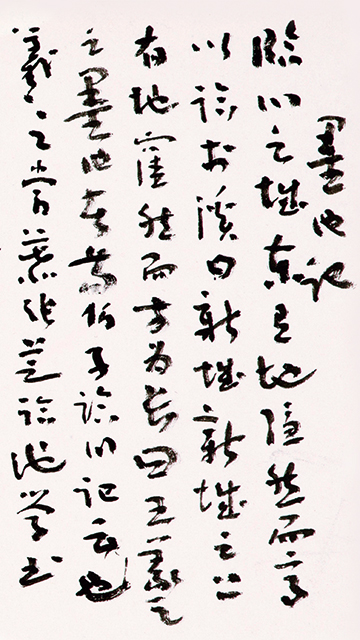 墨池記
臨川之城東有地隱然而高
以臨於溪曰新城新城之上
有池窪然而方為長曰王羲之
之墨池者荀伯子臨川記云也
羲之嘗慕張芝臨池學書